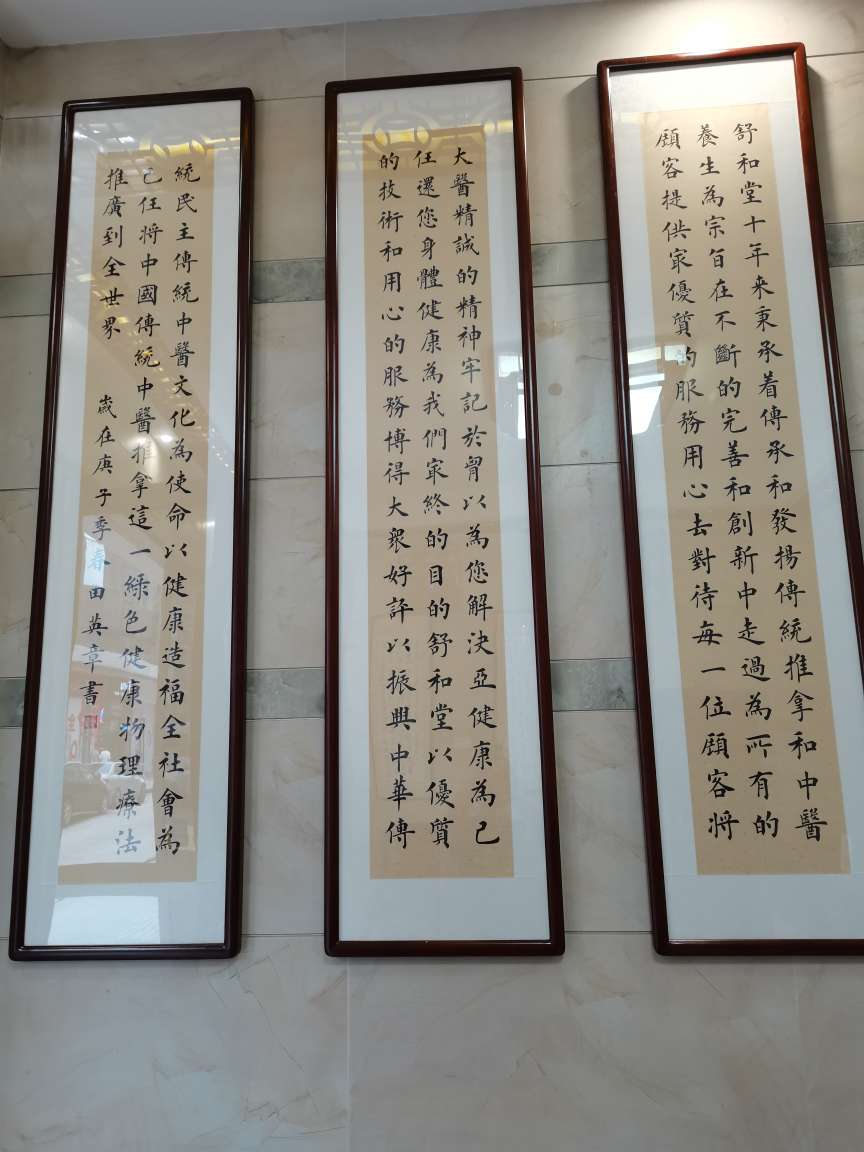 舒和堂十年来秉承着傳承和發揚傳統推拿和中醫
養生為宗旨在不斷的完善和創新中走過為所有的
顧客提供冣優質的服務用心去對待每一位顧客將
大醫精誠的精神牢記於胷以為您解決亞健康為己
任還您身體健康為我們冣終的目的舒和堂以優質
的技術和用心的服務博得大衆好評以振興中華傳
統民主傳統中醫文化為使命以健康造福全社會為
己任將中國傳統中醫推拿這一綠色健康物理療法
推廣到全世界
歲在庚子季春田英章書